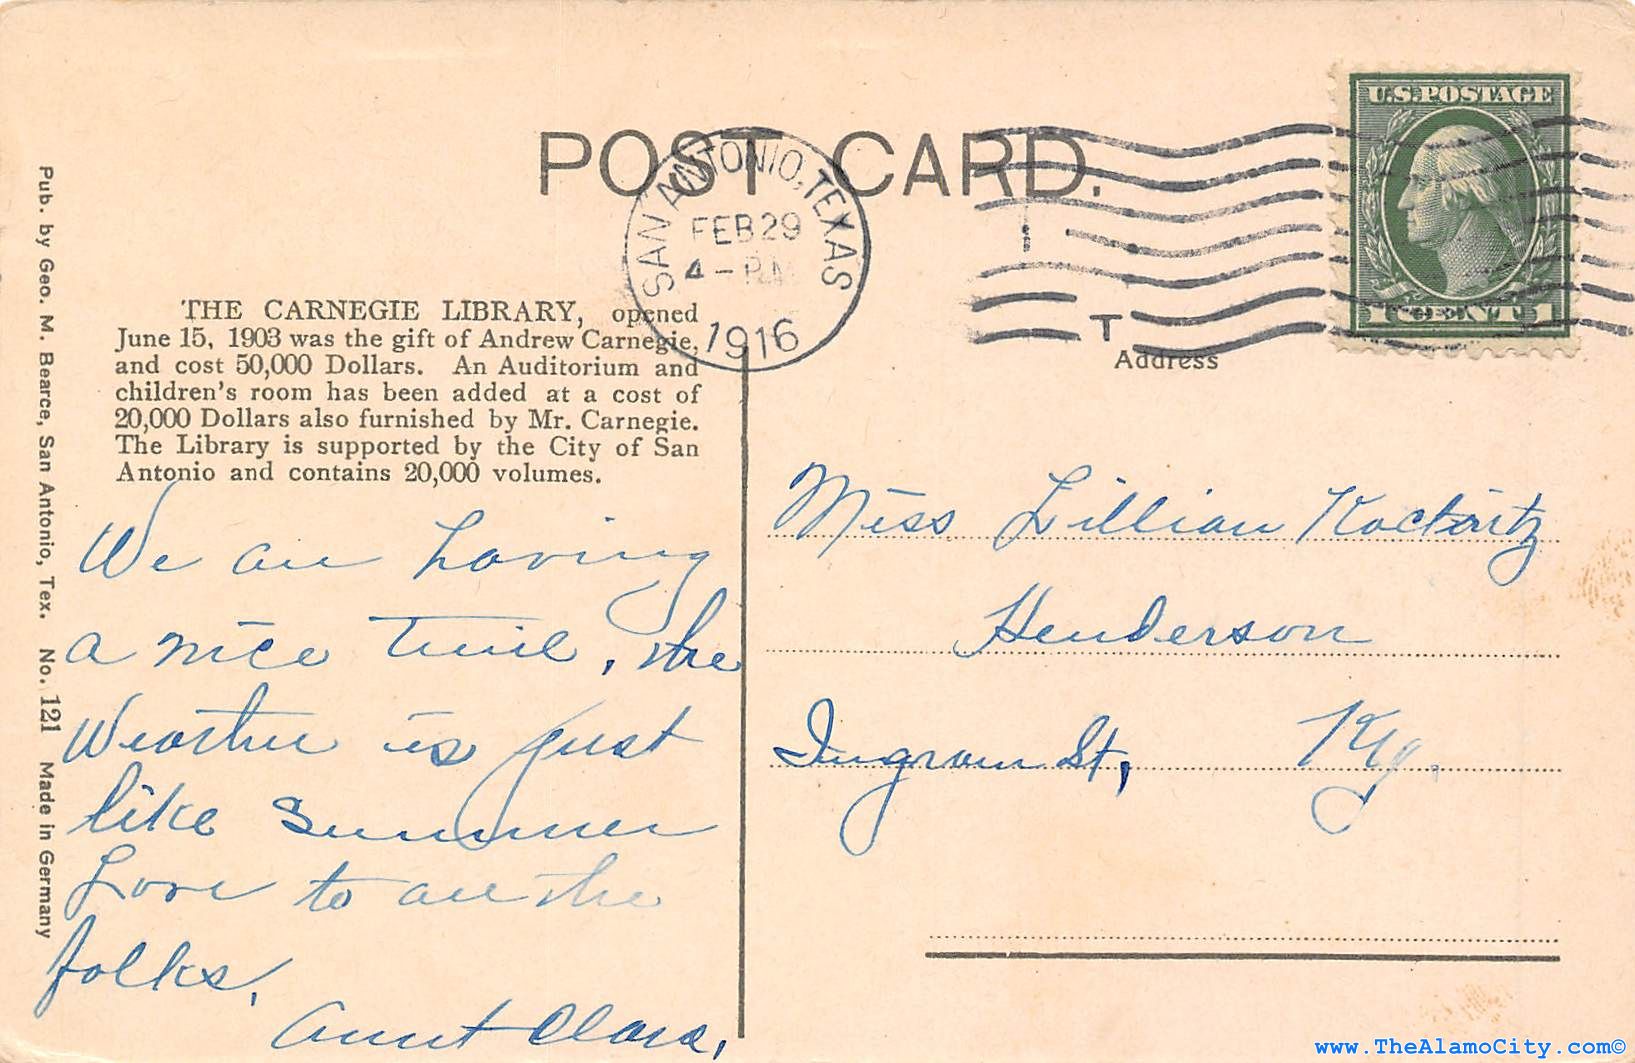 POST CARD.
SAN ANTONIO, TEXAS
FEB 29
4 - P.M.
1916
T
U.S. POSTAGE
1 CENT 1
Address
THE CARNEGIE LIBRARY, opened
June 15, 1903 was the gift of Andrew Carnegie,
and cost 50,000 Dollars. An Auditorium and
children's room has been added at a cost of
20,000 Dollars also furnished by Mr. Carnegie.
The Library is supported by the City of San
Antonio and contains 20,000 volumes.
We are having
a nice time, the
Weather is just
like summer
Love to all the
folks,
Aunt Clara,
Miss Lillian
Henderson
Ingram St, Ky.
Pub. by Geo. M. Bearce, San Antonio, Tex. No. 121 Made in Germany
www.TheAlamoCity.com©